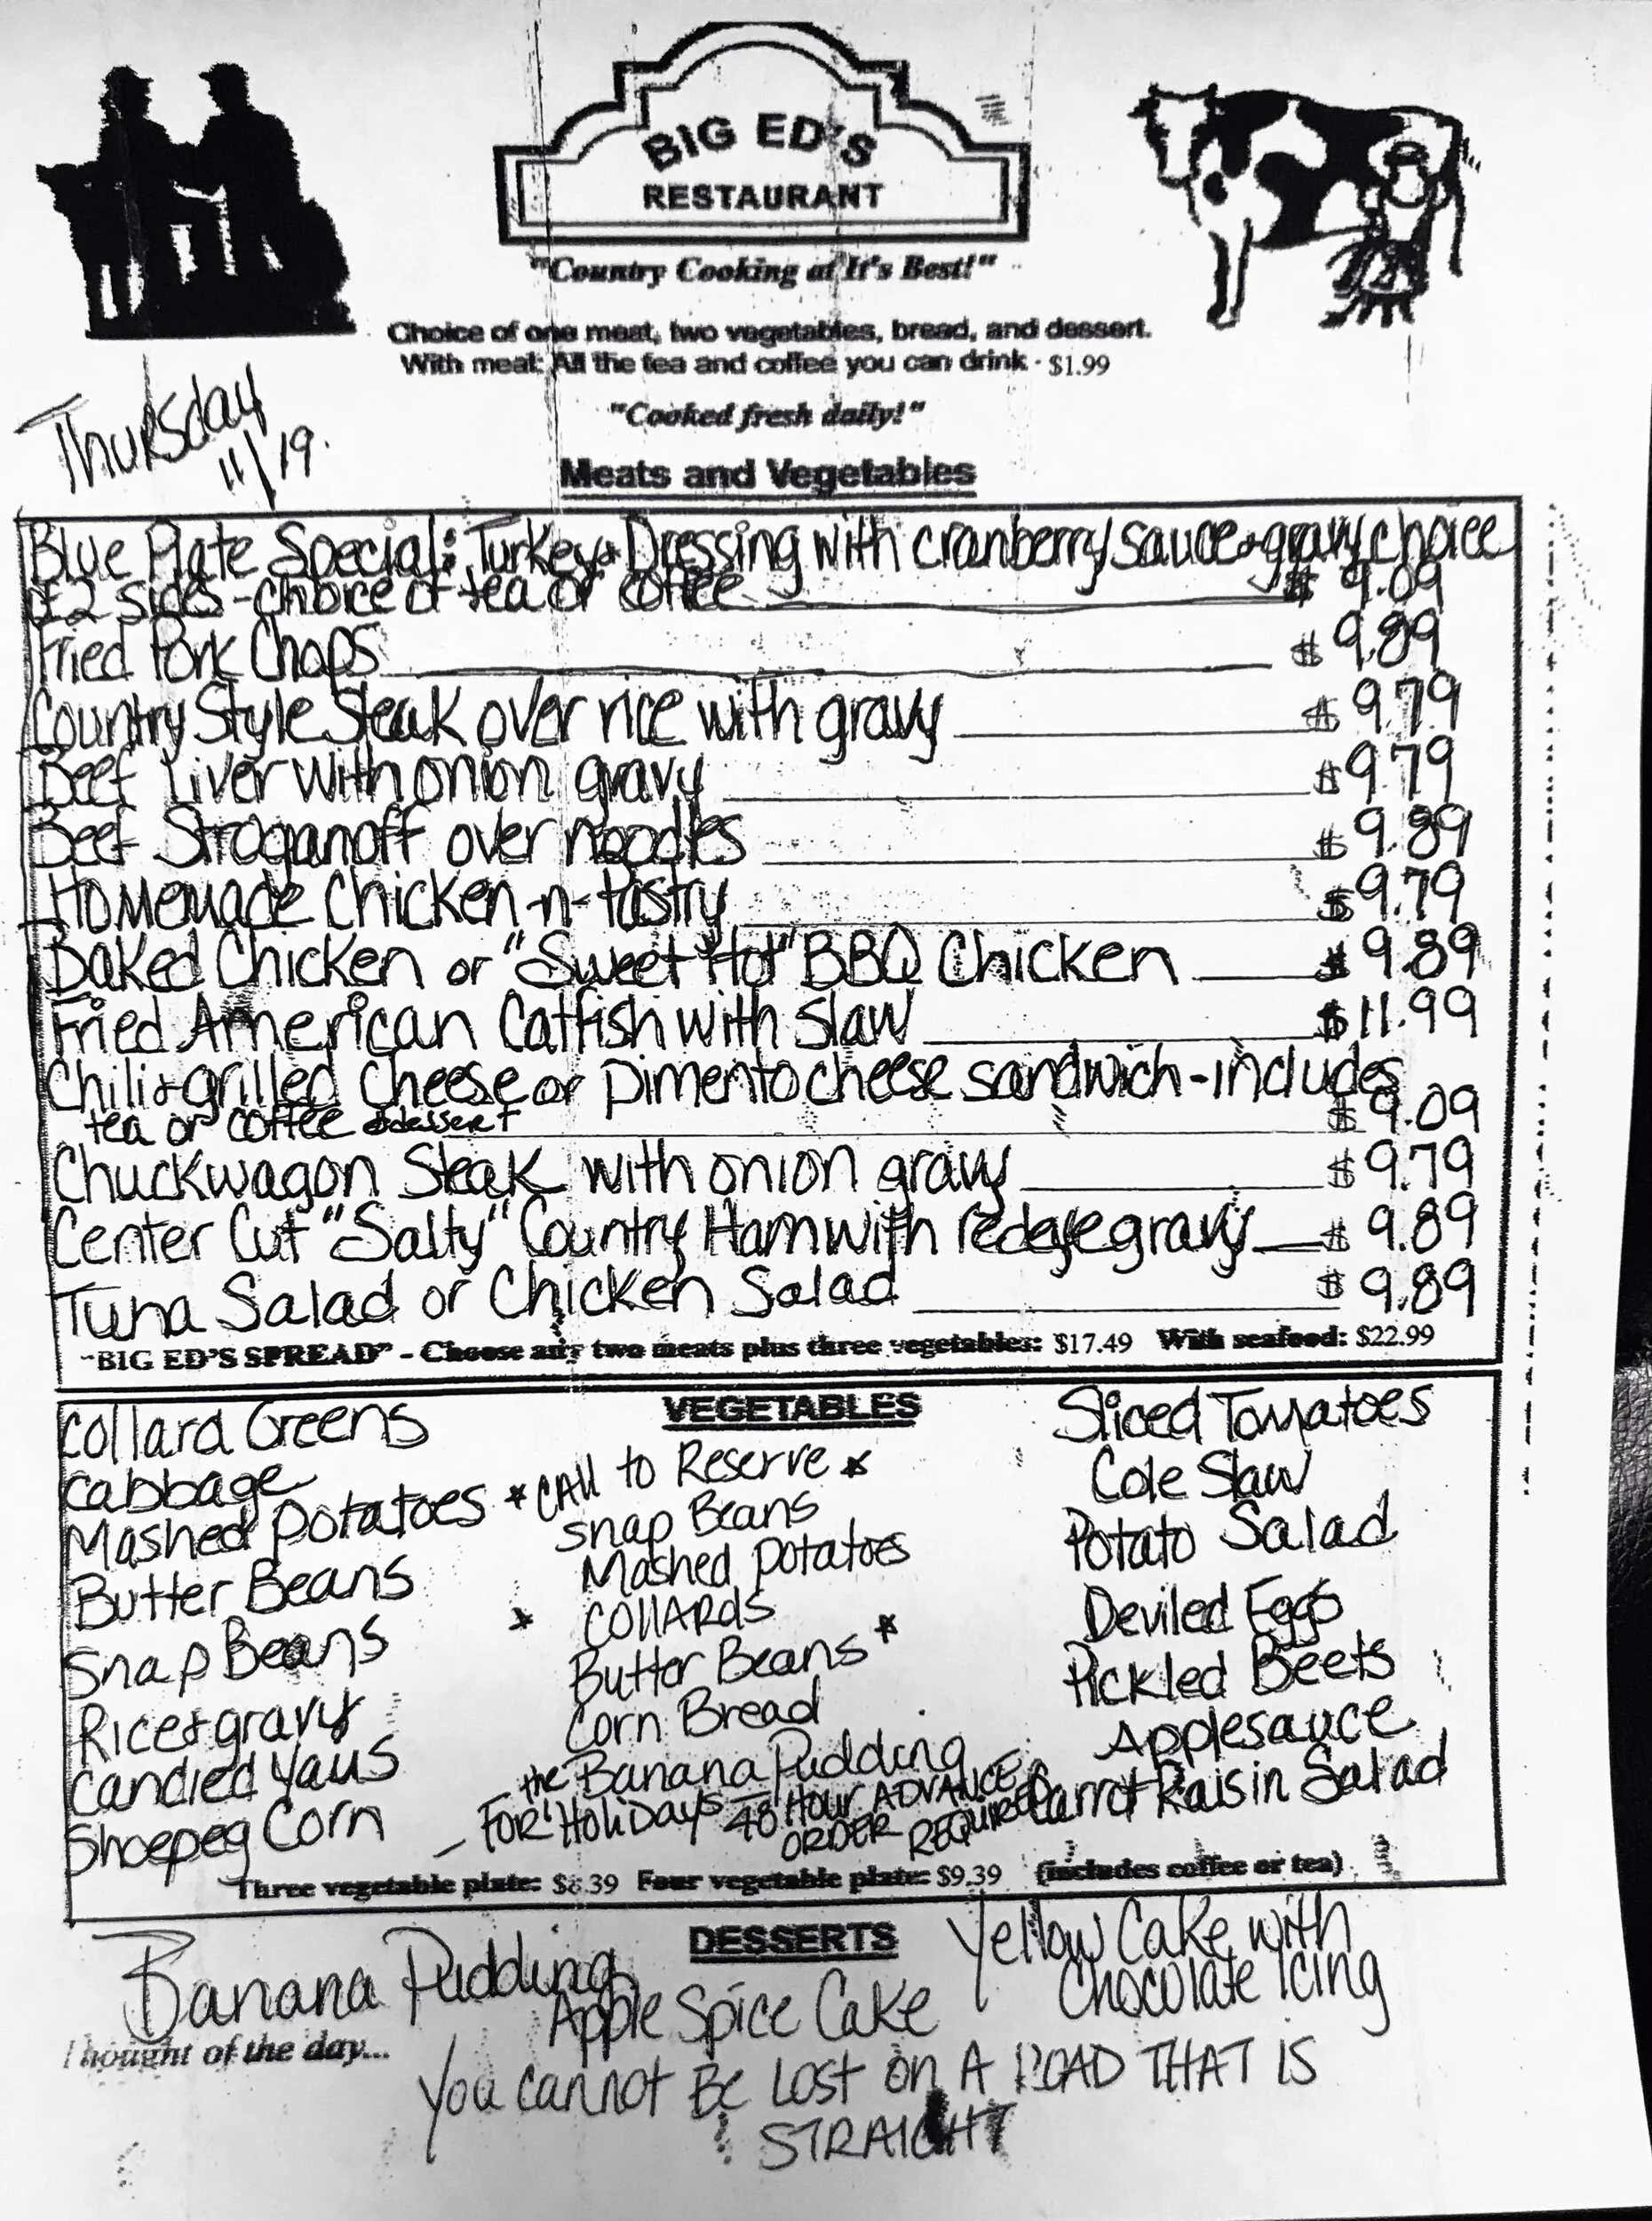 BIG ED'S
RESTAURANT
"Country Cooking at It's Best!"
Choice of one meat, two vegetables, bread, and dessert.
With meal: All the tea and coffee you can drink - $1.99
"Cooked fresh daily!"
Thursday
11/19.
Meats and Vegetables
Blue Plate Special: Turkey & Dressing with cranberry sauce & gravy choice
of 2 sides - choice of tea or coffee $ 9.09
Fried Pork Chops $ 9.89
Country Style Steak over rice with gravy $ 9.79
Beef Liver with onion gravy $ 9.79
Beef Stroganoff over noodles $ 9.89
Homemade Chicken-n-Pastry $ 9.79
Baked Chicken or "Sweet Hot" BBQ Chicken $ 9.89
Fried American Catfish with slaw $ 11.99
Chili & grilled cheese or pimento cheese sandwich - includes
tea or coffee & dessert $ 9.09
Chuckwagon Steak with onion gravy $ 9.79
Center Cut "Salty" Country Ham with redeye gravy $ 9.89
Tuna Salad or Chicken Salad $ 9.89
"BIG ED'S SPREAD" - Choose any two meats plus three vegetables: $17.49 With seafood: $22.99
VEGETABLES
Collard Greens
Cabbage
Mashed Potatoes
Butter Beans
Snap Beans
Rice & gravy
Candied Yams
Shoepeg Corn
* CAll to Reserve *
Snap Beans
Mashed Potatoes
* COllARds
Butter Beans *
Corn Bread
the Banana Pudding
- FOR Holidays - 48 Hour ADVANCE
ORDER REQUIRED
Sliced Tomatoes
Cole Slaw
Potato Salad
Deviled Eggs
Pickled Beets
Applesauce
Carrot Raisin Salad
Three vegetable plate: Four vegetable plate: $9.39 (includes coffee or tea)
DESSERTS
Banana Pudding
Apple Spice Cake
Yellow Cake with
Chocolate Icing
Thought of the day...
You cannot Be Lost on A ROAD THAT IS
STRAIGHT